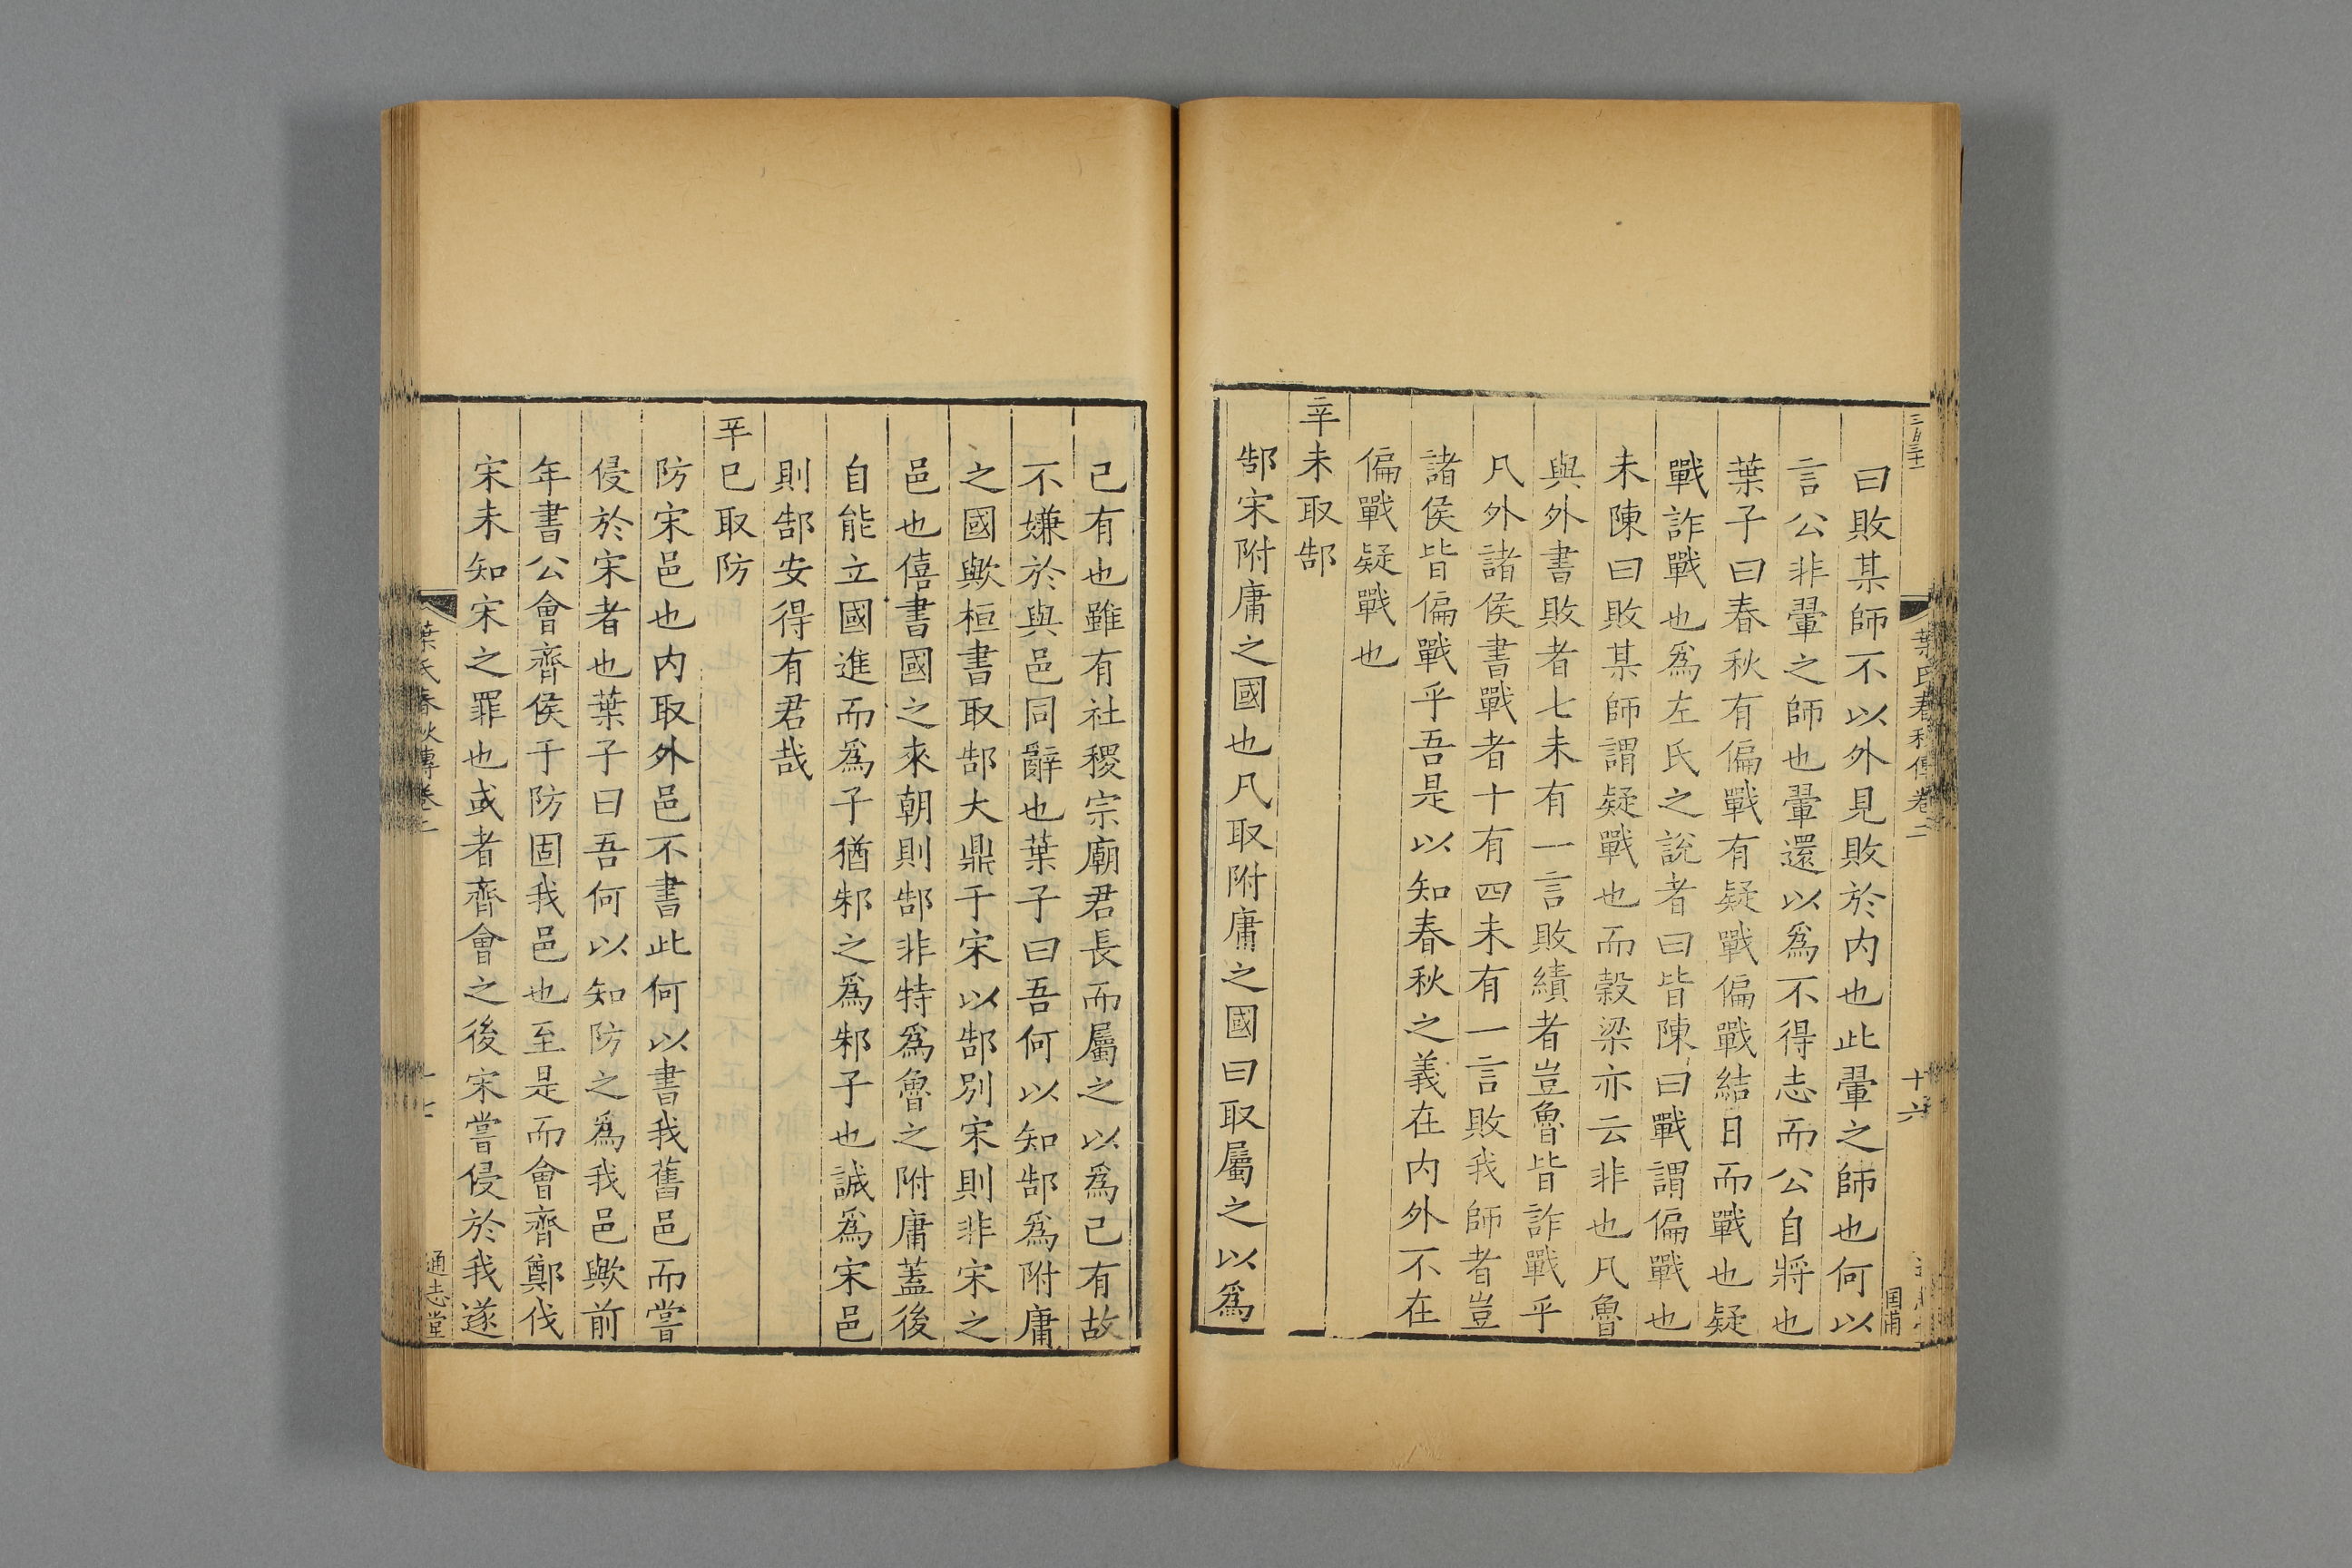 葉氏春秋傳卷二
十六
曰敗某師不以外見敗於内也此翬之師也何以
言公非翬之師也翬還以爲不得志而公自將也
葉子曰春秋有偏戰有疑戰偏戰結日而戰也疑
戰詐戰也爲左氏之說者曰皆陳曰戰謂偏戰也
未陳曰敗某師謂疑戰也而穀梁亦云非也凡魯
與外書敗者七未有一言敗績者豈魯皆詐戰乎
凡外諸侯書戰者十有四未有一言敗我師者豈
諸侯皆偏戰乎吾是以知春秋之義在内外不在
偏戰疑戰也
辛未取郜
郜宋附庸之國也凡取附庸之國曰取屬之以爲
己有也雖有社稷宗廟君長而屬之以爲己有故
不嫌於與邑同辭也葉子曰吾何以知郜爲附庸
之國歟桓書取郜大鼎于宋以郜别宋則非宋之
邑也僖書國之來朝則郜非特爲魯之附庸蓋後
自能立國進而爲子猶邾之爲邾子也誠爲宋邑
則郜安得有君哉
辛巳取防
防宋邑也内取外邑不書此何以書我舊邑而嘗
侵於宋者也葉子曰吾何以知防之爲我邑歟前
年書公會齊侯于防固我邑也至是而會齊鄭伐
宋未知宋之罪也或者齊會之後宋嘗侵於我遂
葉氏春秋傳卷二
十七
通志堂